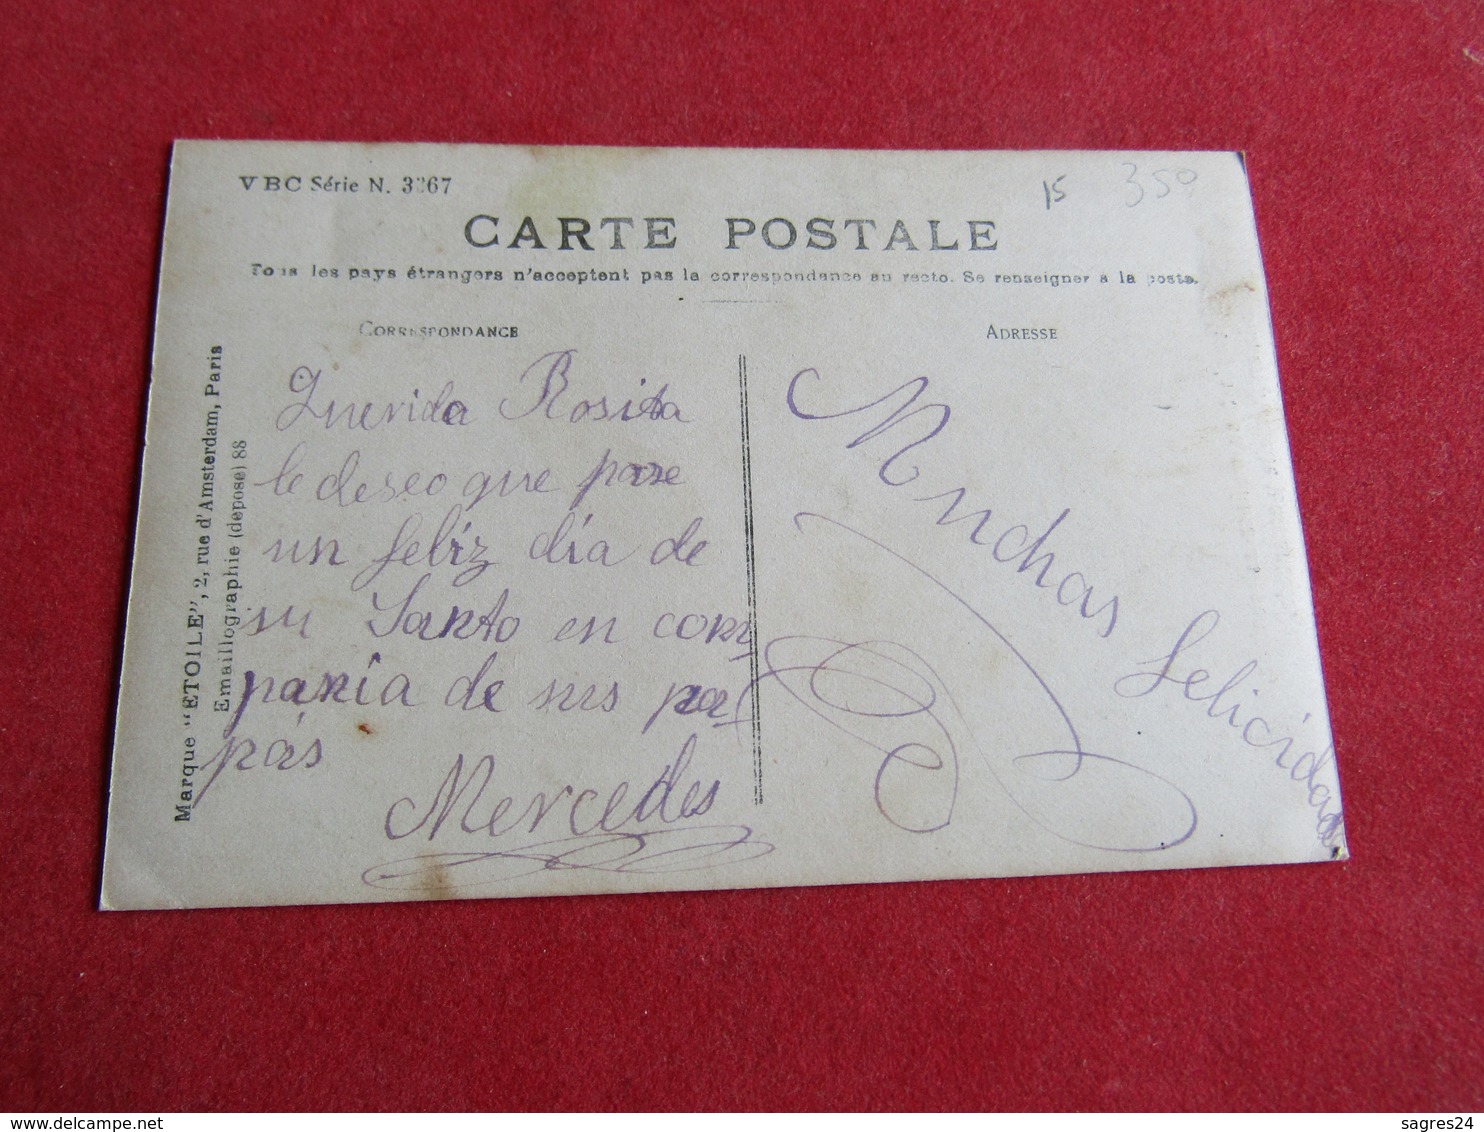 VBC Série N. 3267
15
350
CARTE POSTALE
Tous les pays étrangers n'acceptent pas la correspondance au recto. Se renseigner à la poste.
CORRESPONDANCE
ADRESSE
Marque "ETOILE", 2, rue d'Amsterdam, Paris
Emaillographie (déposé) 88
Querida Rosita
le deseo que pase
un feliz dia de
su Santo en com
pania de sus pa-
pás
Mercedes
Muchas felicidades
sagres24